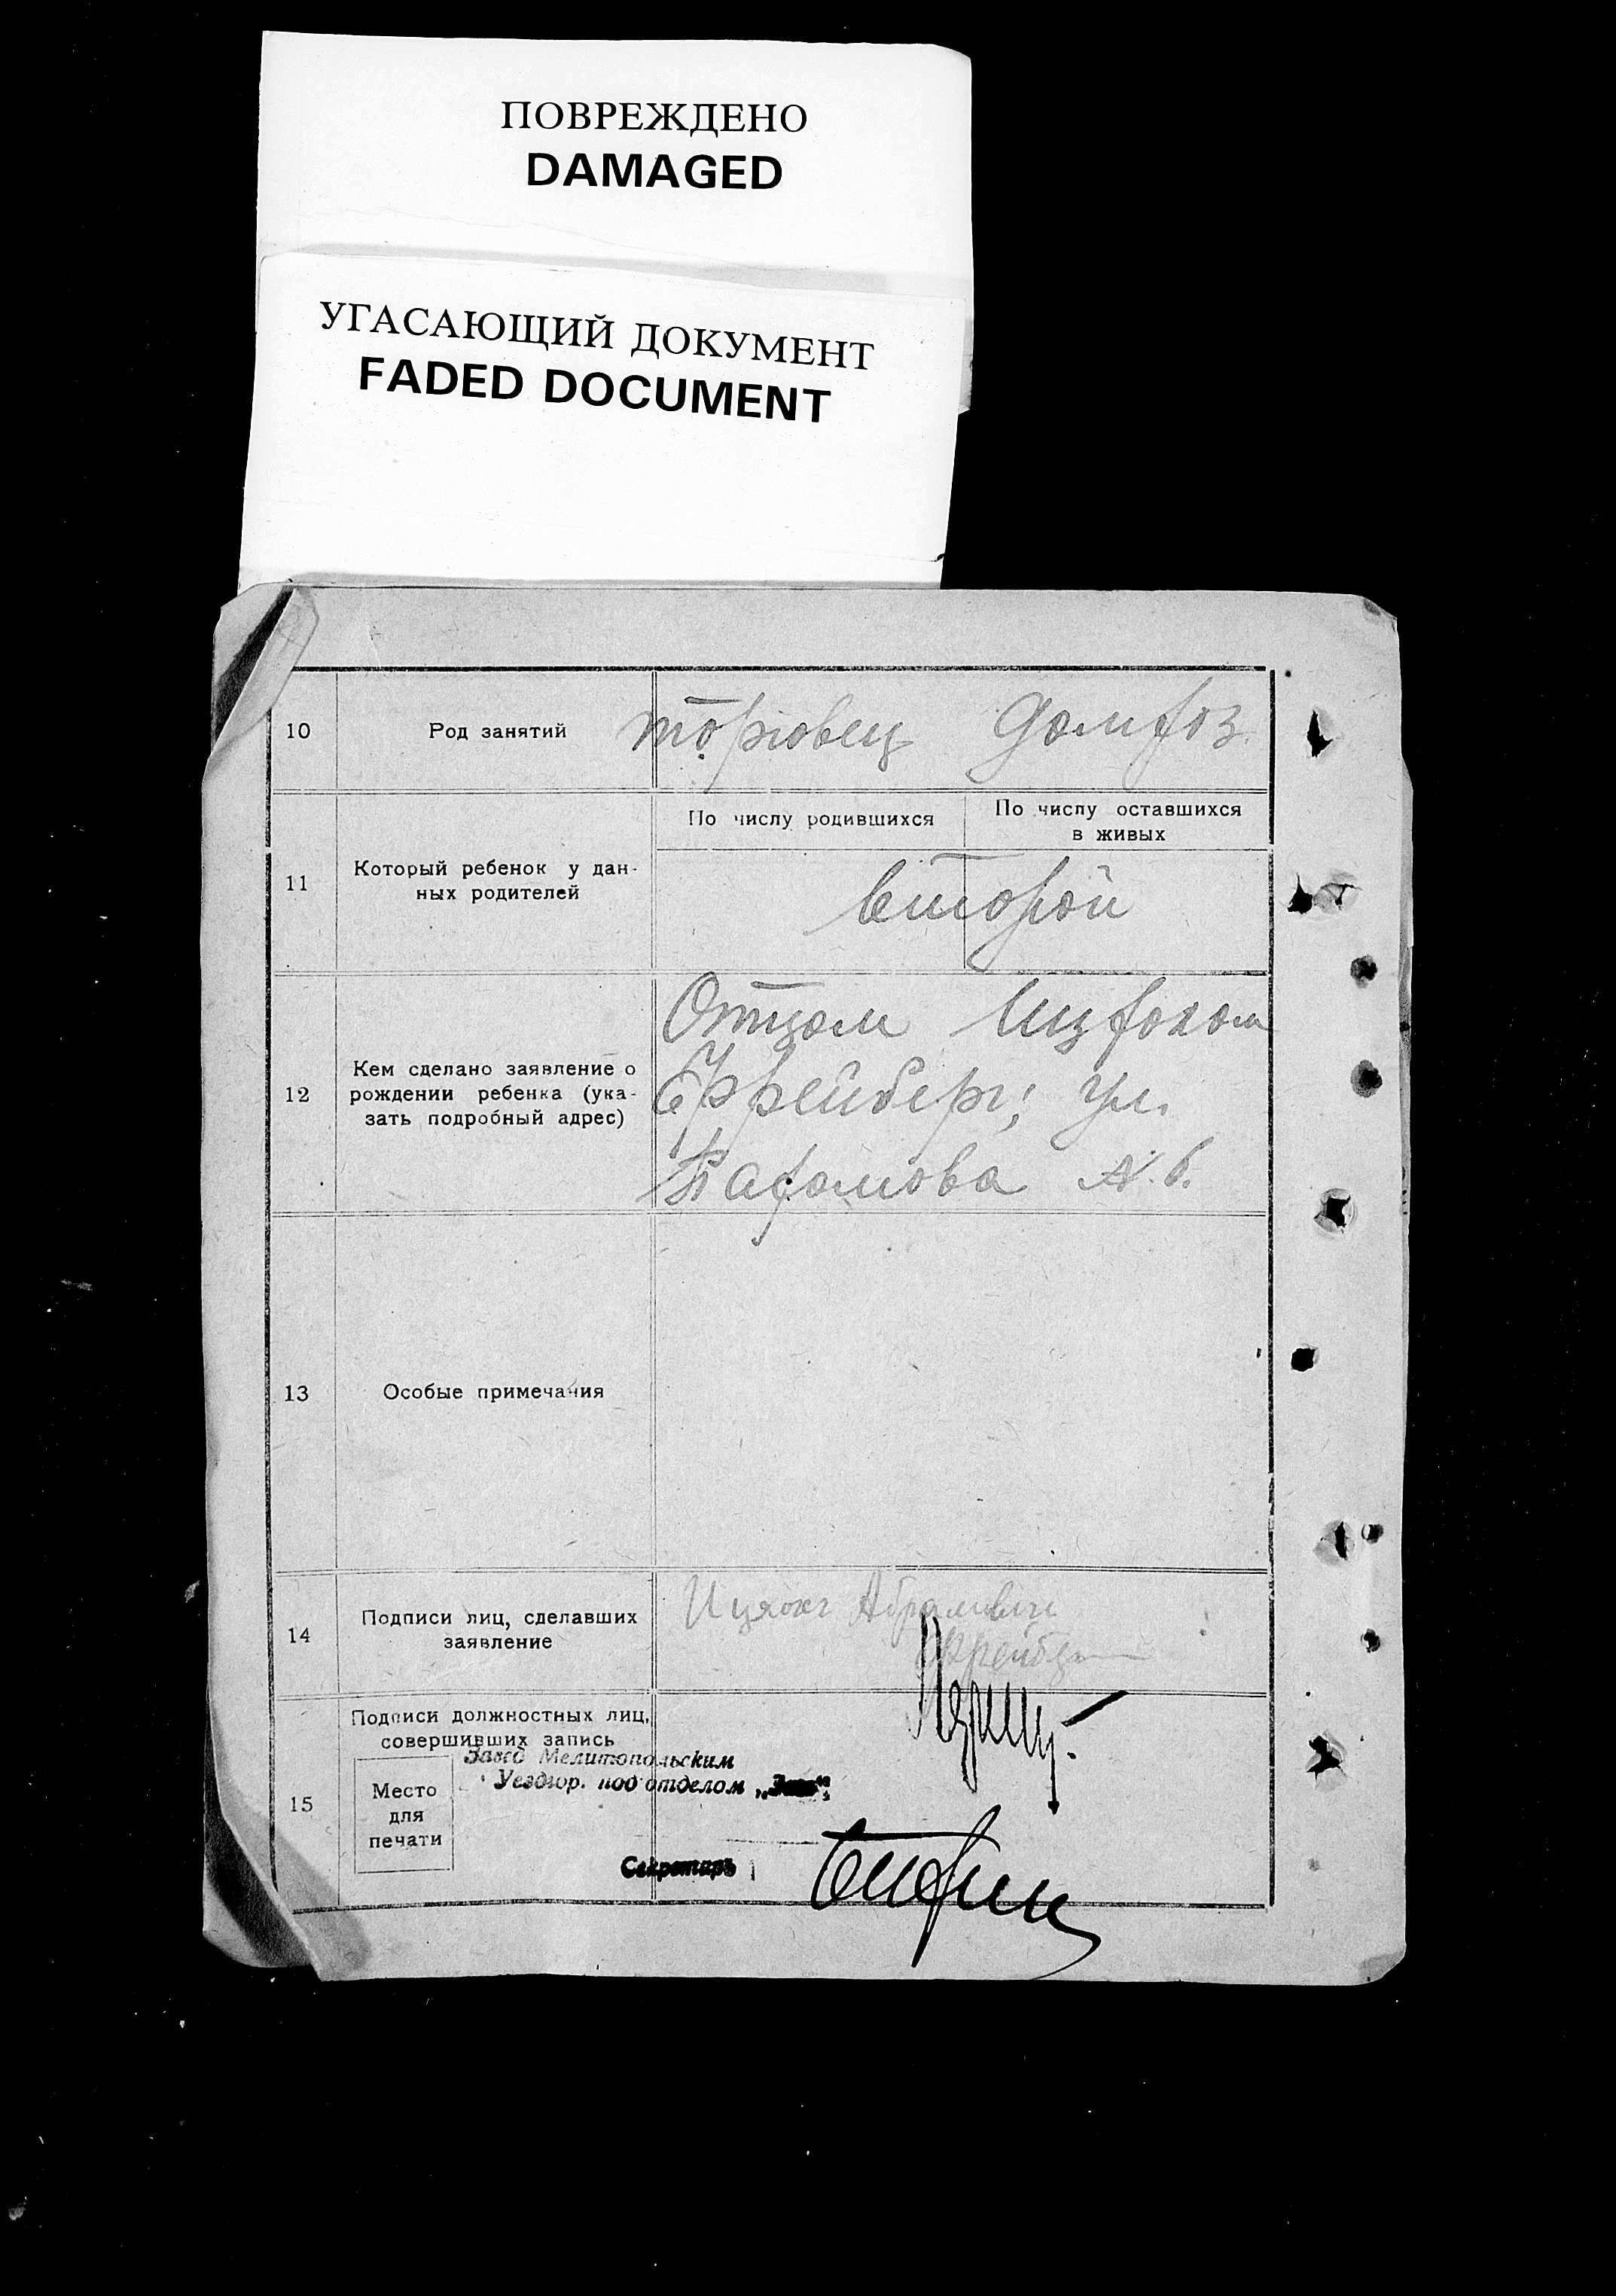 ПОВРЕЖДЕНО
DAMAGED
УГАСАЮЩИЙ ДОКУМЕНТ
FADED DOCUMENT
10
Род занятий
торговец
домхоз.
11
Который ребенок у дан-
ных родителей
По числу родившихся
По числу оставшихся
в живых
второй
12
Кем сделано заявление о
рождении ребенка (ука-
зать подробный адрес)
Отцом Ицхоком
Фрейберг; ул.
13
Особые примечания
14
Подписи лиц, сделавших
заявление
Абрамович
Фрейберг
15
Подписи должностных лиц,
совершивших запись
Место
для
печати
Завед Мелитопольским
Уездгор. под отделом „Загс“
Секретарь